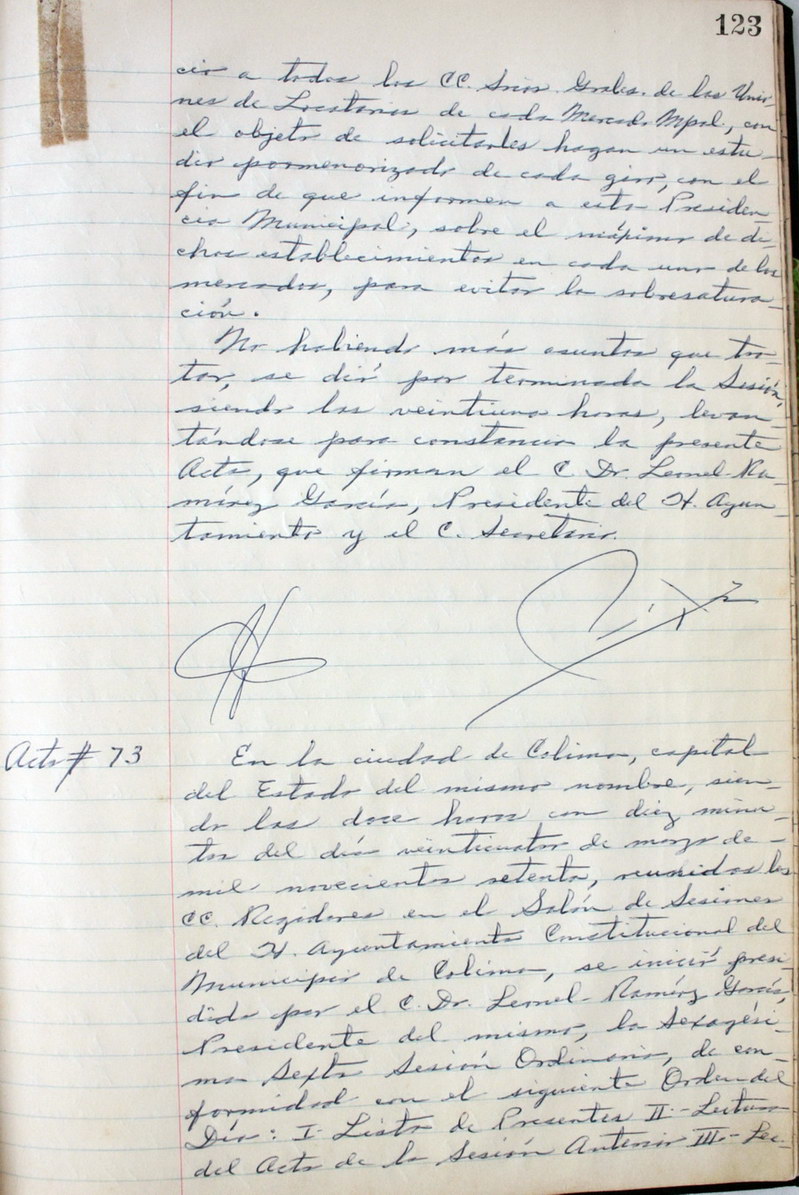 123
cio a todos los CC. Srios. Grales. de las Unio-
nes de Locatarios de cada Mercado Mpal, con
el objeto de solicitarles hagan un estu-
dio pormenorizado de cada giro, con el
fin de que informen a esta Presiden-
cia Municipal, sobre el máximo de di-
chos establecimientos en cada uno de los
mercados, para evitar la sobresatura-
ción.
No habiendo más asuntos que tra-
tar, se dió por terminada la Sesión,
siendo las veintiuna horas, levan-
tándose para constancia la presente
Acta, que firman el C. Dr. Leonel Ra-
mírez García, Presidente del H. Ayun-
tamiento y el C. Secretario.
Acta # 73
En la ciudad de Colima, capital
del Estado del mismo nombre, sien-
do las doce horas con diez minu-
tos del día veinticuatro de marzo de
mil novecientos setenta, reunidos los
CC. Regidores en el Salón de Sesiones
del H. Ayuntamiento Constitucional del
Municipio de Colima, se inició presi-
dida por el C. Dr. Leonel Ramírez García,
Presidente del mismo, la Sexagési-
ma Sexta Sesión Ordinaria, de con-
formidad con el siguiente Orden del
Día: I.- Lista de Presentes II.- Lectura
del Acta de la Sesión Anterior III.- Lec-